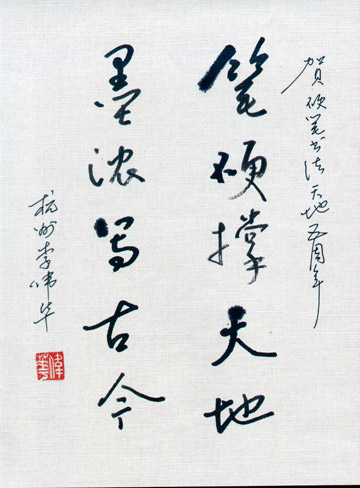 贺硬笔书法天地五周年
笔硬撑天地
墨浓写古今
杭州李伟华
伟华